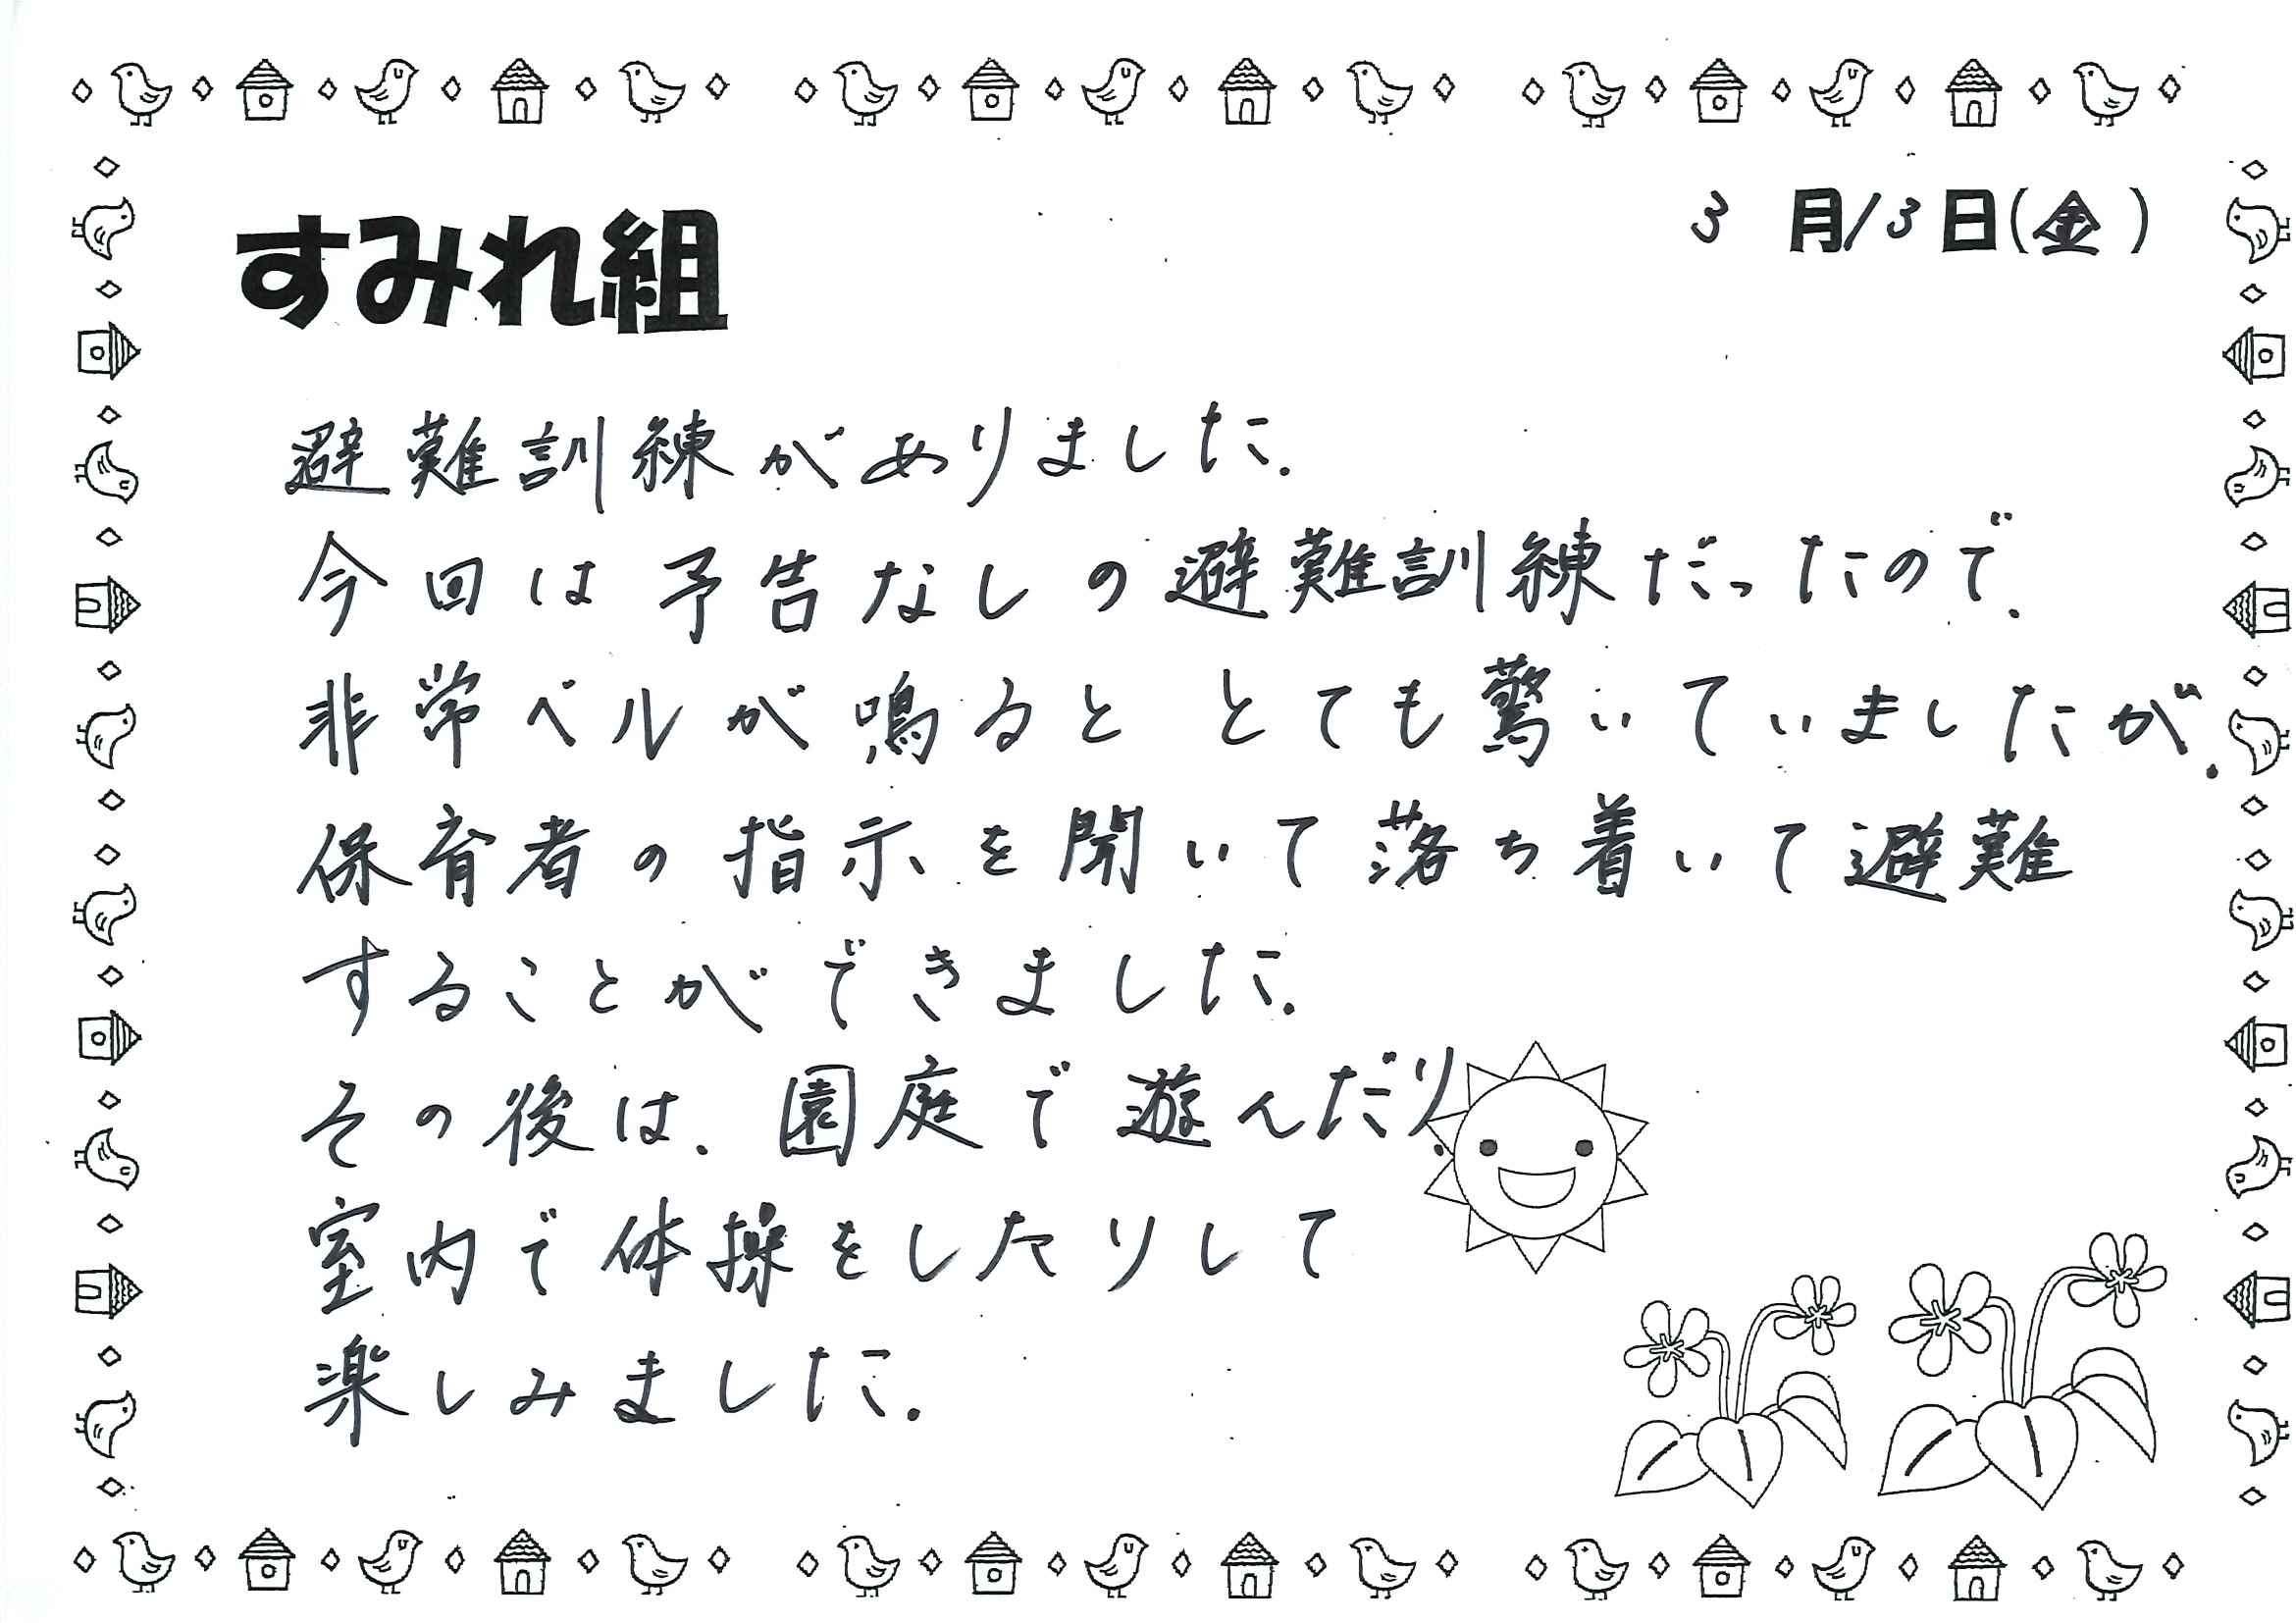 すみれ組
3月13日(金)
避難訓練がありました.
今回は予告なしの避難訓練だったので.
非常ベルが鳴ると とても驚いていましたが.
保育者の指示を聞いて落ち着いて避難
することができました.
その後は.園庭で遊んだり.
室内で体操をしたりして
楽しみました.